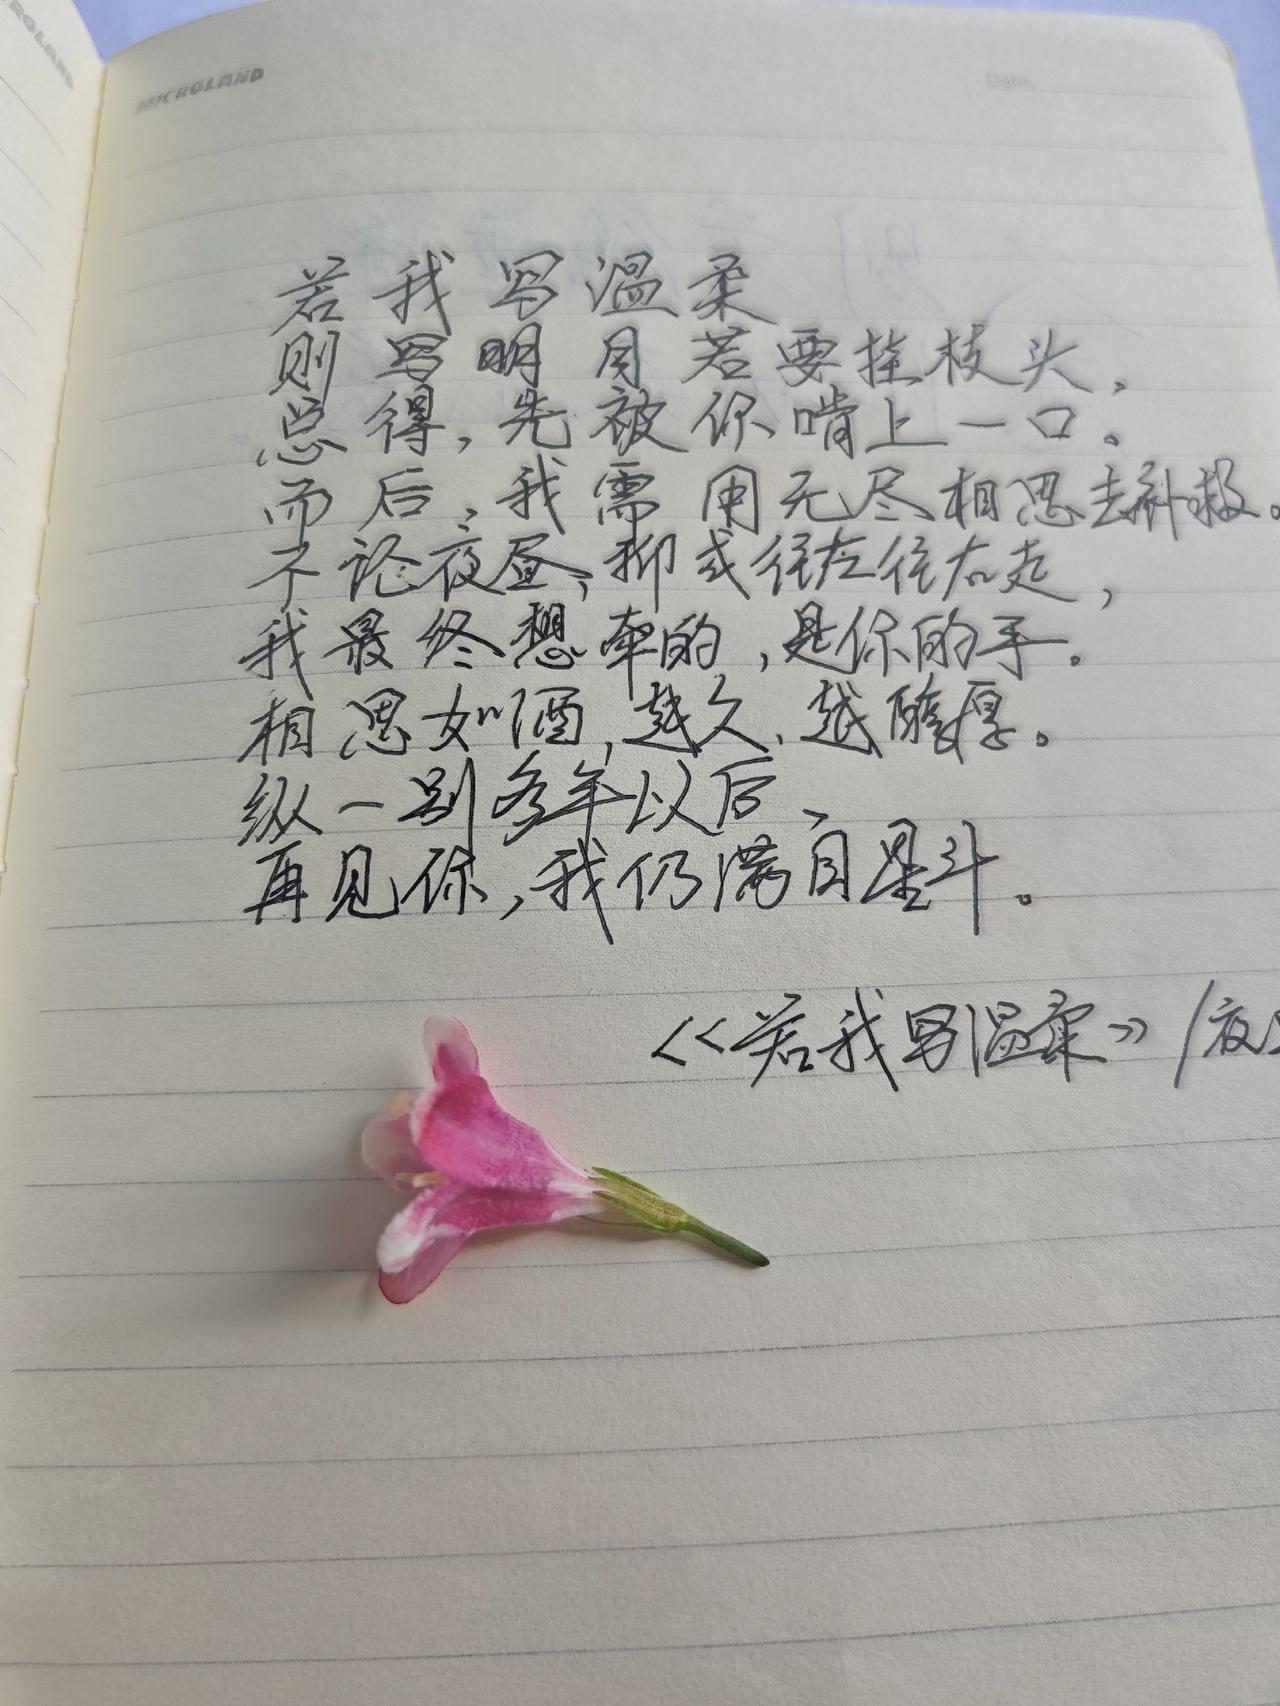 MICROLAND
Date
若我写温柔
则写明月若要挂枝头,
总得,先被你啃上一口。
而后,我需用无尽相思去补救。
不论夜昼,抑或往左往右走,
我最终想牵的,是你的手。
相思如酒,越久,越醇厚。
纵一别多年以后,
再见你,我仍满目星斗。
<<若我写温柔>>/夜